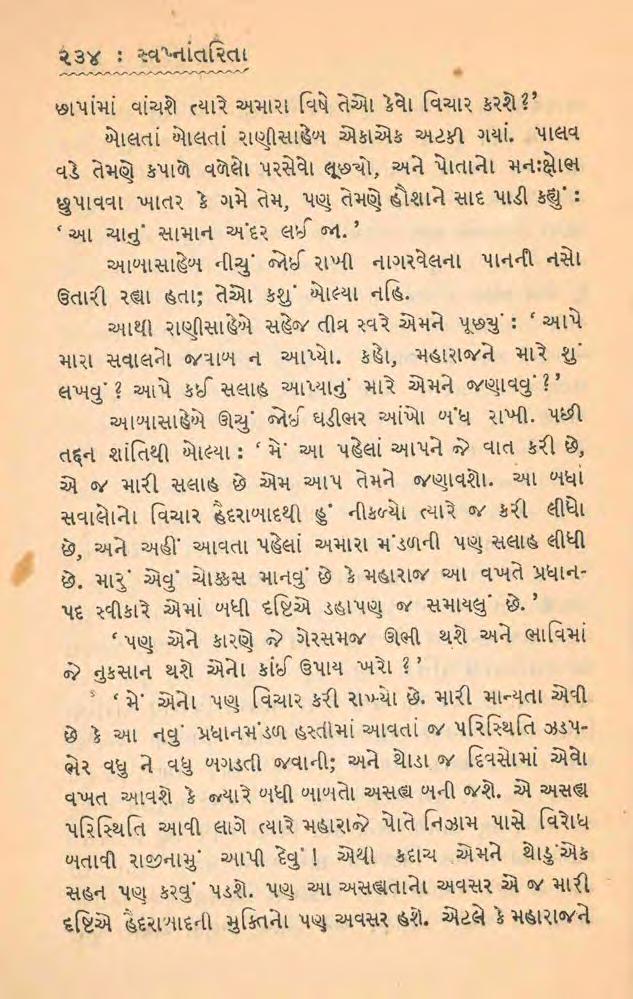 ૨૩૪ : સ્વપ્નાંતરિતા
છાપાંમાં વાંચશે ત્યારે અમારા વિષે તેઓ કેવો વિચાર કરશે ?’
બોલતાં બોલતાં રાણીસાહેબ એકાએક અટકી ગયાં. પાલવ
વડે તેમણે કપાળે વળેલો પરસેવો લૂછ્યો, અને પોતાનો મનઃક્ષોભ
છુપાવવા ખાતર કે ગમે તેમ, પણ તેમણે હૌશાને સાદ પાડી કહ્યું :
‘ આ ચાનું સામાન અંદર લઈ જા. ’
આબાસાહેબ નીચું જોઈ રાખી નાગરવેલના પાનની નસો
ઉતારી રહ્યા હતા; તેઓ કશું બોલ્યા નહિ.
આથી રાણીસાહેબે સહેજ તીવ્ર સ્વરે એમને પૂછ્યું : ‘ આપે
મારા સવાલનો જવાબ ન આપ્યો. કહો, મહારાજને મારે શું
લખવું ? આપે કઈ સલાહ આપ્યાનું મારે એમને જણાવવું ?’
આબાસાહેબે ઊંચું જોઈ ઘડીભર આંખો બંધ રાખી. પછી
તદ્દન શાંતિથી બોલ્યા : ‘ મેં આ પહેલાં આપને જે વાત કરી છે,
એ જ મારી સલાહ છે એમ આપ તેમને જણાવશો. આ બધાં
સવાલોનો વિચાર હૈદરાબાદથી હું નીકળ્યો ત્યારે જ કરી લીધો
છે, અને અહીં આવતા પહેલાં અમારા મંડળની પણ સલાહ લીધી
છે. મારું એવું ચોક્કસ માનવું છે કે મહારાજ આ વખતે પ્રધાન-
પદ સ્વીકારે એમાં બધી દૃષ્ટિએ ડહાપણ જ સમાયલું છે. ’
‘ પણ એને કારણે જે ગેરસમજ ઊભી થશે અને ભાવિમાં
જે નુકસાન થશે એનો કાંઈ ઉપાય ખરો ?’
‘ મેં એનો પણ વિચાર કરી રાખ્યો છે. મારી માન્યતા એવી
છે કે આ નવું પ્રધાનમંડળ હસ્તીમાં આવતાં જ પરિસ્થિતિ ઝડપ-
ભેર વધુ ને વધુ બગડતી જવાની; અને થોડા જ દિવસોમાં એવો
વખત આવશે કે જ્યારે બધી બાબતો અસહ્ય બની જશે. એ અસહ્ય
પરિસ્થિતિ આવી લાગે ત્યારે મહારાજે પોતે નિઝામ પાસે વિરોધ
બતાવી રાજીનામું આપી દેવું ! એથી કદાચ એમને થોડુંએક
સહન પણ કરવું પડશે. પણ આ અસહ્યતાનો અવસર એ જ મારી
દૃષ્ટિએ હૈદરાબાદની મુક્તિનો પણ અવસર હશે. એટલે કે મહારાજને